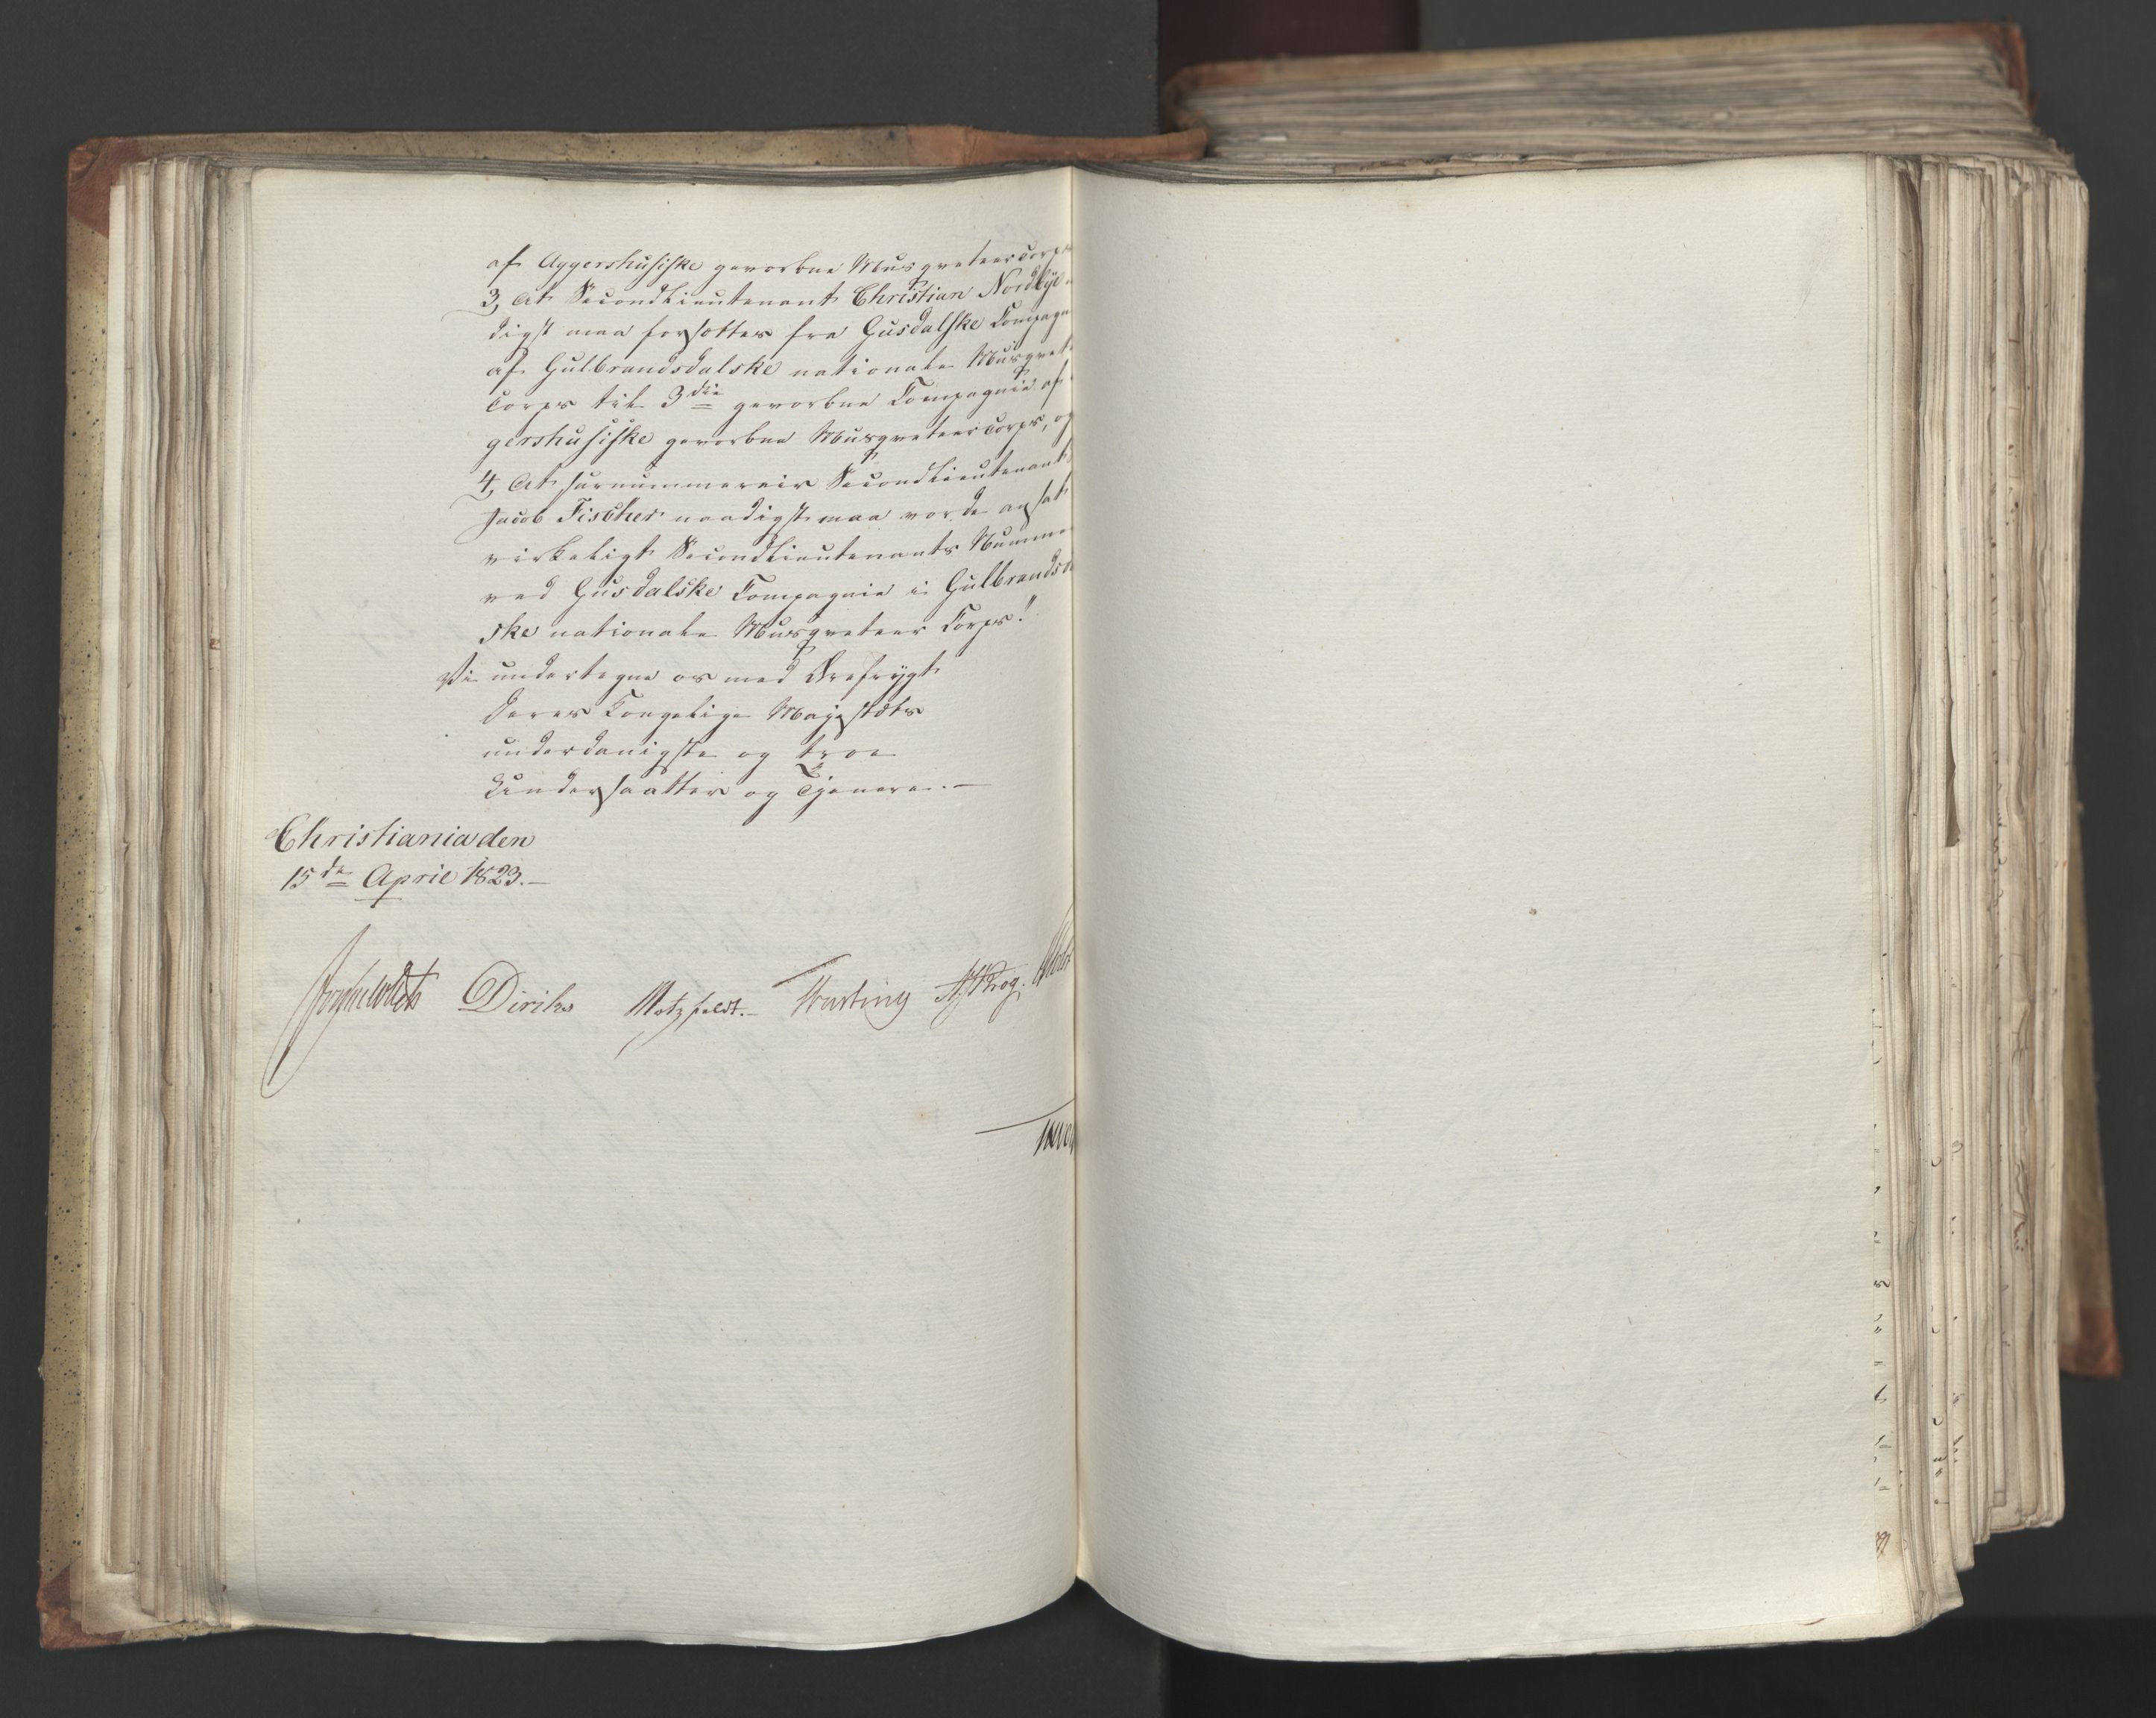 af Aggershusiske gevorbne Musqveteercorps
3, At Secondlieutenant Christian Nordbye
digst maa forsættes fra Gusdalske Compagn
af Gulbrandsdalske nationale Musqvet
Corps til 3die gevorbne Compagnie af
gershusiske gevorbne Musqveteercorps, og
4, At surnummerair Secondlieutenant
Jacob Fischer naadigst maa vorde ansat
virkeligt Secondlieutenants Numme
ved Gusdalske Compagnie i Gulbrandsd
ske nationale Musqveteer Corps."
Vi undertegne os med Ærefrygt
Deres Kongelige Majestæts
underdanigste og troe
Undersaatter og Tjenere.
Christiania den
15de April 1823.
Diriks Motzfeldt. Krog.